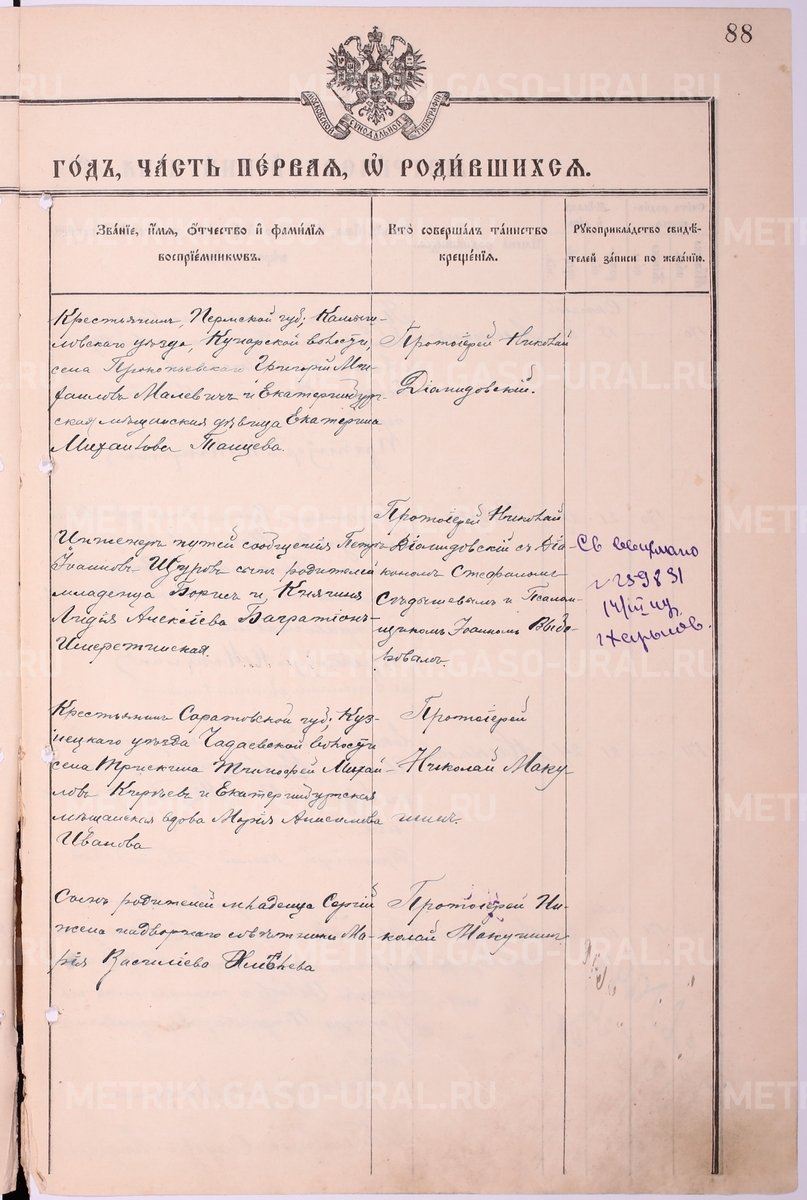 88
МОСКОВСКОЙ СѴНОДАЛЬНОЙ ТИПОГРАФІИ
ГО́ДЪ, ЧА́СТЬ ПЕ́РВАЯ, Ѡ҆ РОДИ́ВШИХСЯ.
Зва́нїе, и҆́мя, ѻ҆́тчество и҆ фами́лїя
воспрїе́мниковъ.
Кто̀ соверша́лъ та́инство
креще́нїя.
Рꙋкоприкла́дство свидѣ́-
телей за́писи по жела́нїю.
Крестьянинъ, Пермской губ; Камыш-
ловскаго уѣзда, Кунарской волости,
села Прокопьевскаго Григорій Ми-
хаиловъ Малевичъ и Екатеринбург-
ская мѣщанская дѣвица Екатерина
Михайлова
Протоіерей Николай
Діомидовскій.
Инженеръ путей сообщенія Петръ
Іоанновъ Щуровъ сынъ родителей
младенца Борисъ и, Княгиня
Лидія Алексіева Багратіонъ-
Имеретинская
Протоіерей Николай
Діомидовскій съ Діа-
кономъ Стефаномъ
Сѣдышевымъ и Псалом-
щикомъ Іоанномъ
Св
№ 259831
14/III
г Харьков.
Крестьянинъ Саратовской губ; Куз-
нецкаго уѣзда Чадаевской волости
села Трескина Тимофей Михай-
ловъ Киреевъ и Екатеринбургская
мѣщанская вдова Марія Анисимова
Иванова
Протоіерей
Николай Маку-
шинъ.
Сынъ родителей младенца Сергій
жена надворнаго совѣтника Ма-
рія Василіева
Протоіерей Ни-
колай Макушинъ
METRIKI.GASO-URAL.RU